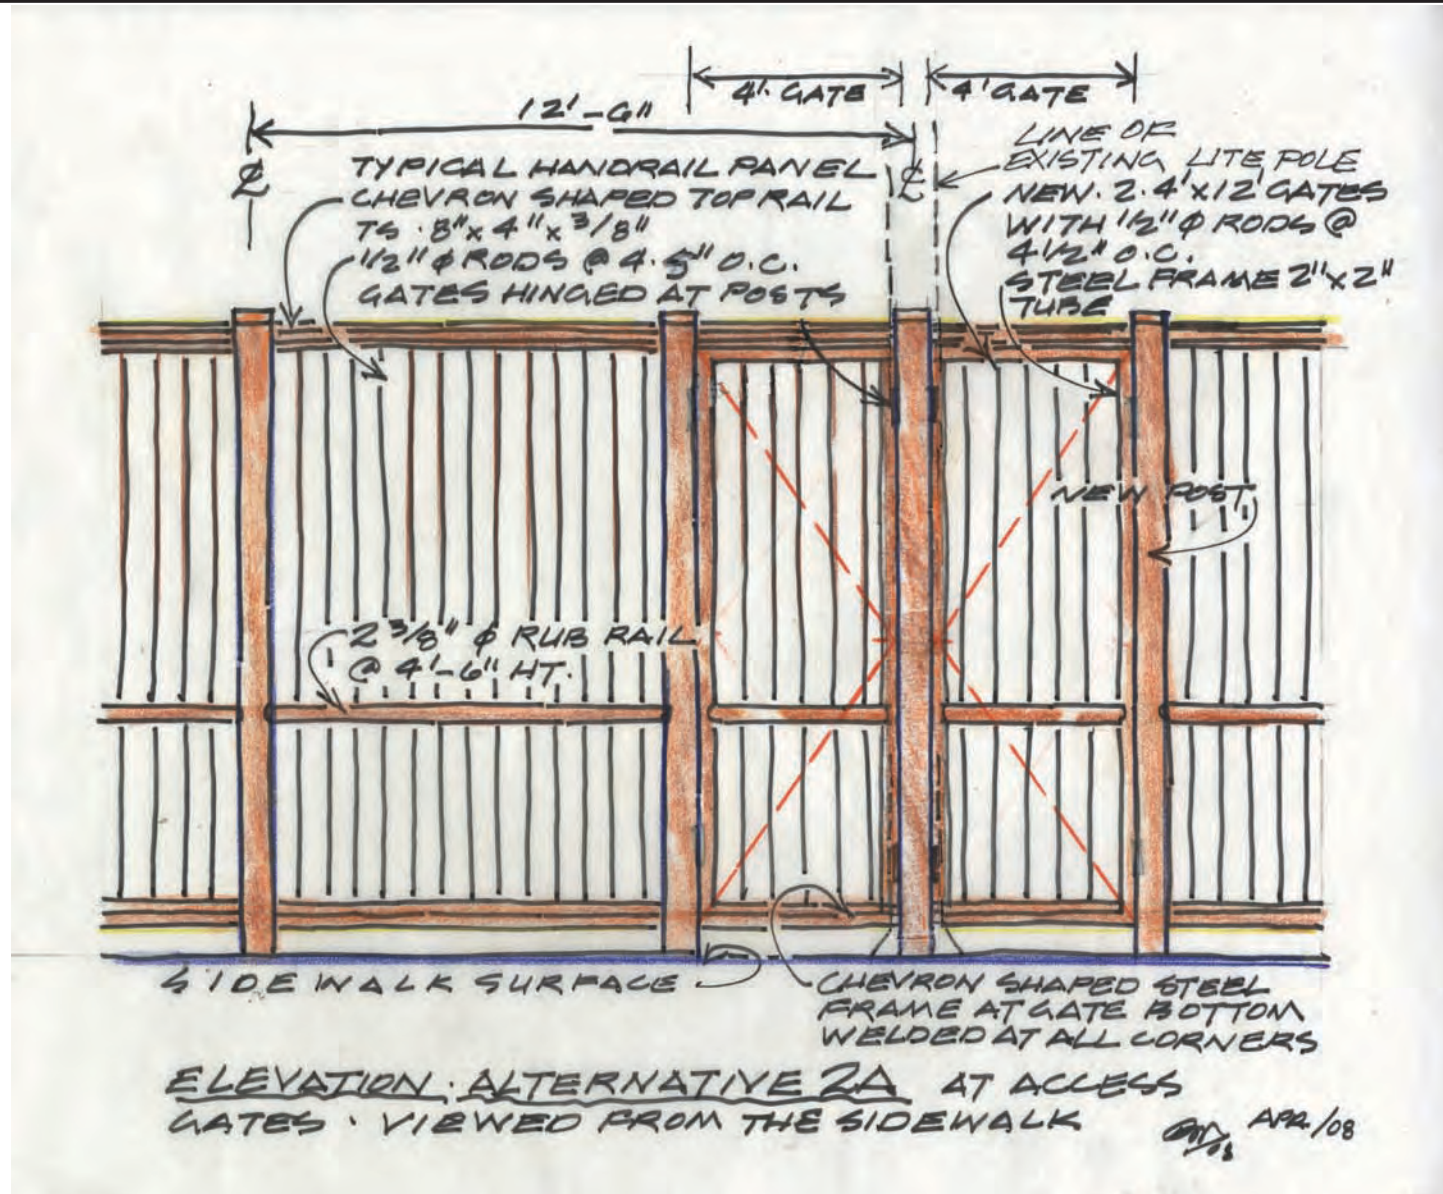 4'. GATE
4' GATE
12'-6"
℄
℄
TYPICAL HANDRAIL PANEL
CHEVRON SHAPED TOP RAIL
TS . 8" x 4" x 3/8"
1/2" φ RODS @ 4.5" O.C.
GATES HINGED AT POSTS
LINE OF
EXISTING LITE POLE
NEW . 2 . 4' x 12' GATES
WITH 1/2" φ RODS @
4 1/2" O.C.
STEEL FRAME 2" x 2"
TUBE
NEW POST
2 3/8" φ RUB RAIL
@ 4'-6" HT.
SIDEWALK SURFACE
CHEVRON SHAPED STEEL
FRAME AT GATE BOTTOM
WELDED AT ALL CORNERS
ELEVATION . ALTERNATIVE 2A AT ACCESS
GATES . VIEWED FROM THE SIDEWALK
APR /08